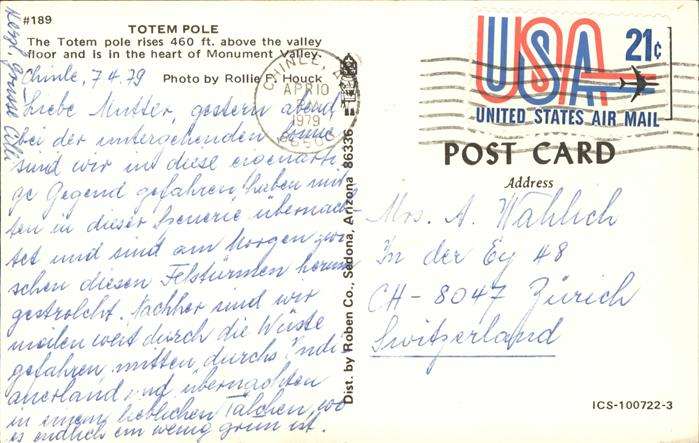 #189
TOTEM POLE
The Totem pole rises 460 ft. above the valley
floor and is in the heart of Monument Valley.
Photo by Rollie F. Houck
Chinle, 7.4.79
Liebe Mutter, gestern abend
bei der untergehenden Sonne
sind wir in diese eigenarti-
ge Gegend gefahren, haben mit-
ten in dieser Scenerie übernach-
tet und sind am Morgen zwi-
schen diesen Felstürmen herum-
gestrolcht. Nachher sind wir
meilenweit durch die Wüste
gefahren mitten durchs Indi-
anerland und übernachten
in einem lieblichen Tälchen, wo
es endlich ein wenig grün ist.
Herzl. Grüsse
Dist. by Roben Co., Sedona, Arizona 86336
CHINLE,
APR 10
1979
USA 21c
UNITED STATES AIR MAIL
POST CARD
Address
Mrs. A. Wahlich
In der Ey 48
CH-8047 Zürich
Switzerland
ICS-100722-3